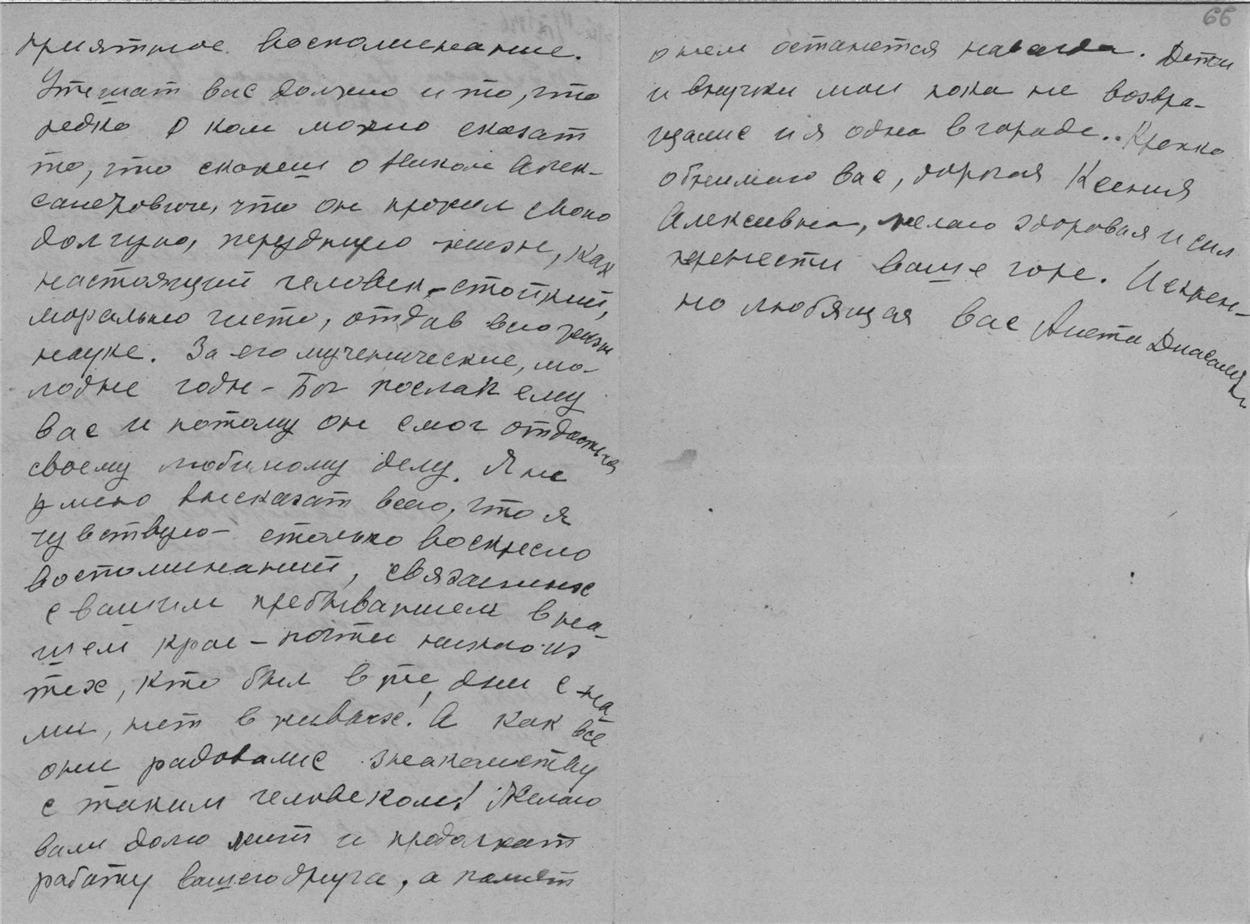 приятное воспоминание.
Утешат вас должно и то, что
редко о ком можно сказат
то, что скажеш о Николе Алек-
сандровиче, что он прожил свою
долгую, трудную жизнь, как
настоящий человек – стойкий,
морально чисто, отдав всю жизн
науке. За его мученические, мо-
лодые годы – Бог послал ему
вас и потому он смог отдаться
своему любимому делу. Я не
умею высказат всего, что я
чувствую – столько воскресло
воспоминаний, связанных
с вашим пребыванием в на-
шем крае – почти никого из
тех, кто был в те дни с на
ми, нет в живых! А как все
они радовалис знакомству
с таким человеком! Желаю
вам долго жит и продолжат
работу вашего друга, а памят
66
о нем останется навсегда. Дети
и внучки мои пока не возвра-
щалис и я одна в городе.. Крепко
обнимаю вас, дорогая Ксения
Алексевна, желаю здоровая и сил
перенести ваше горе. Искрен-
но любящая вас Анета